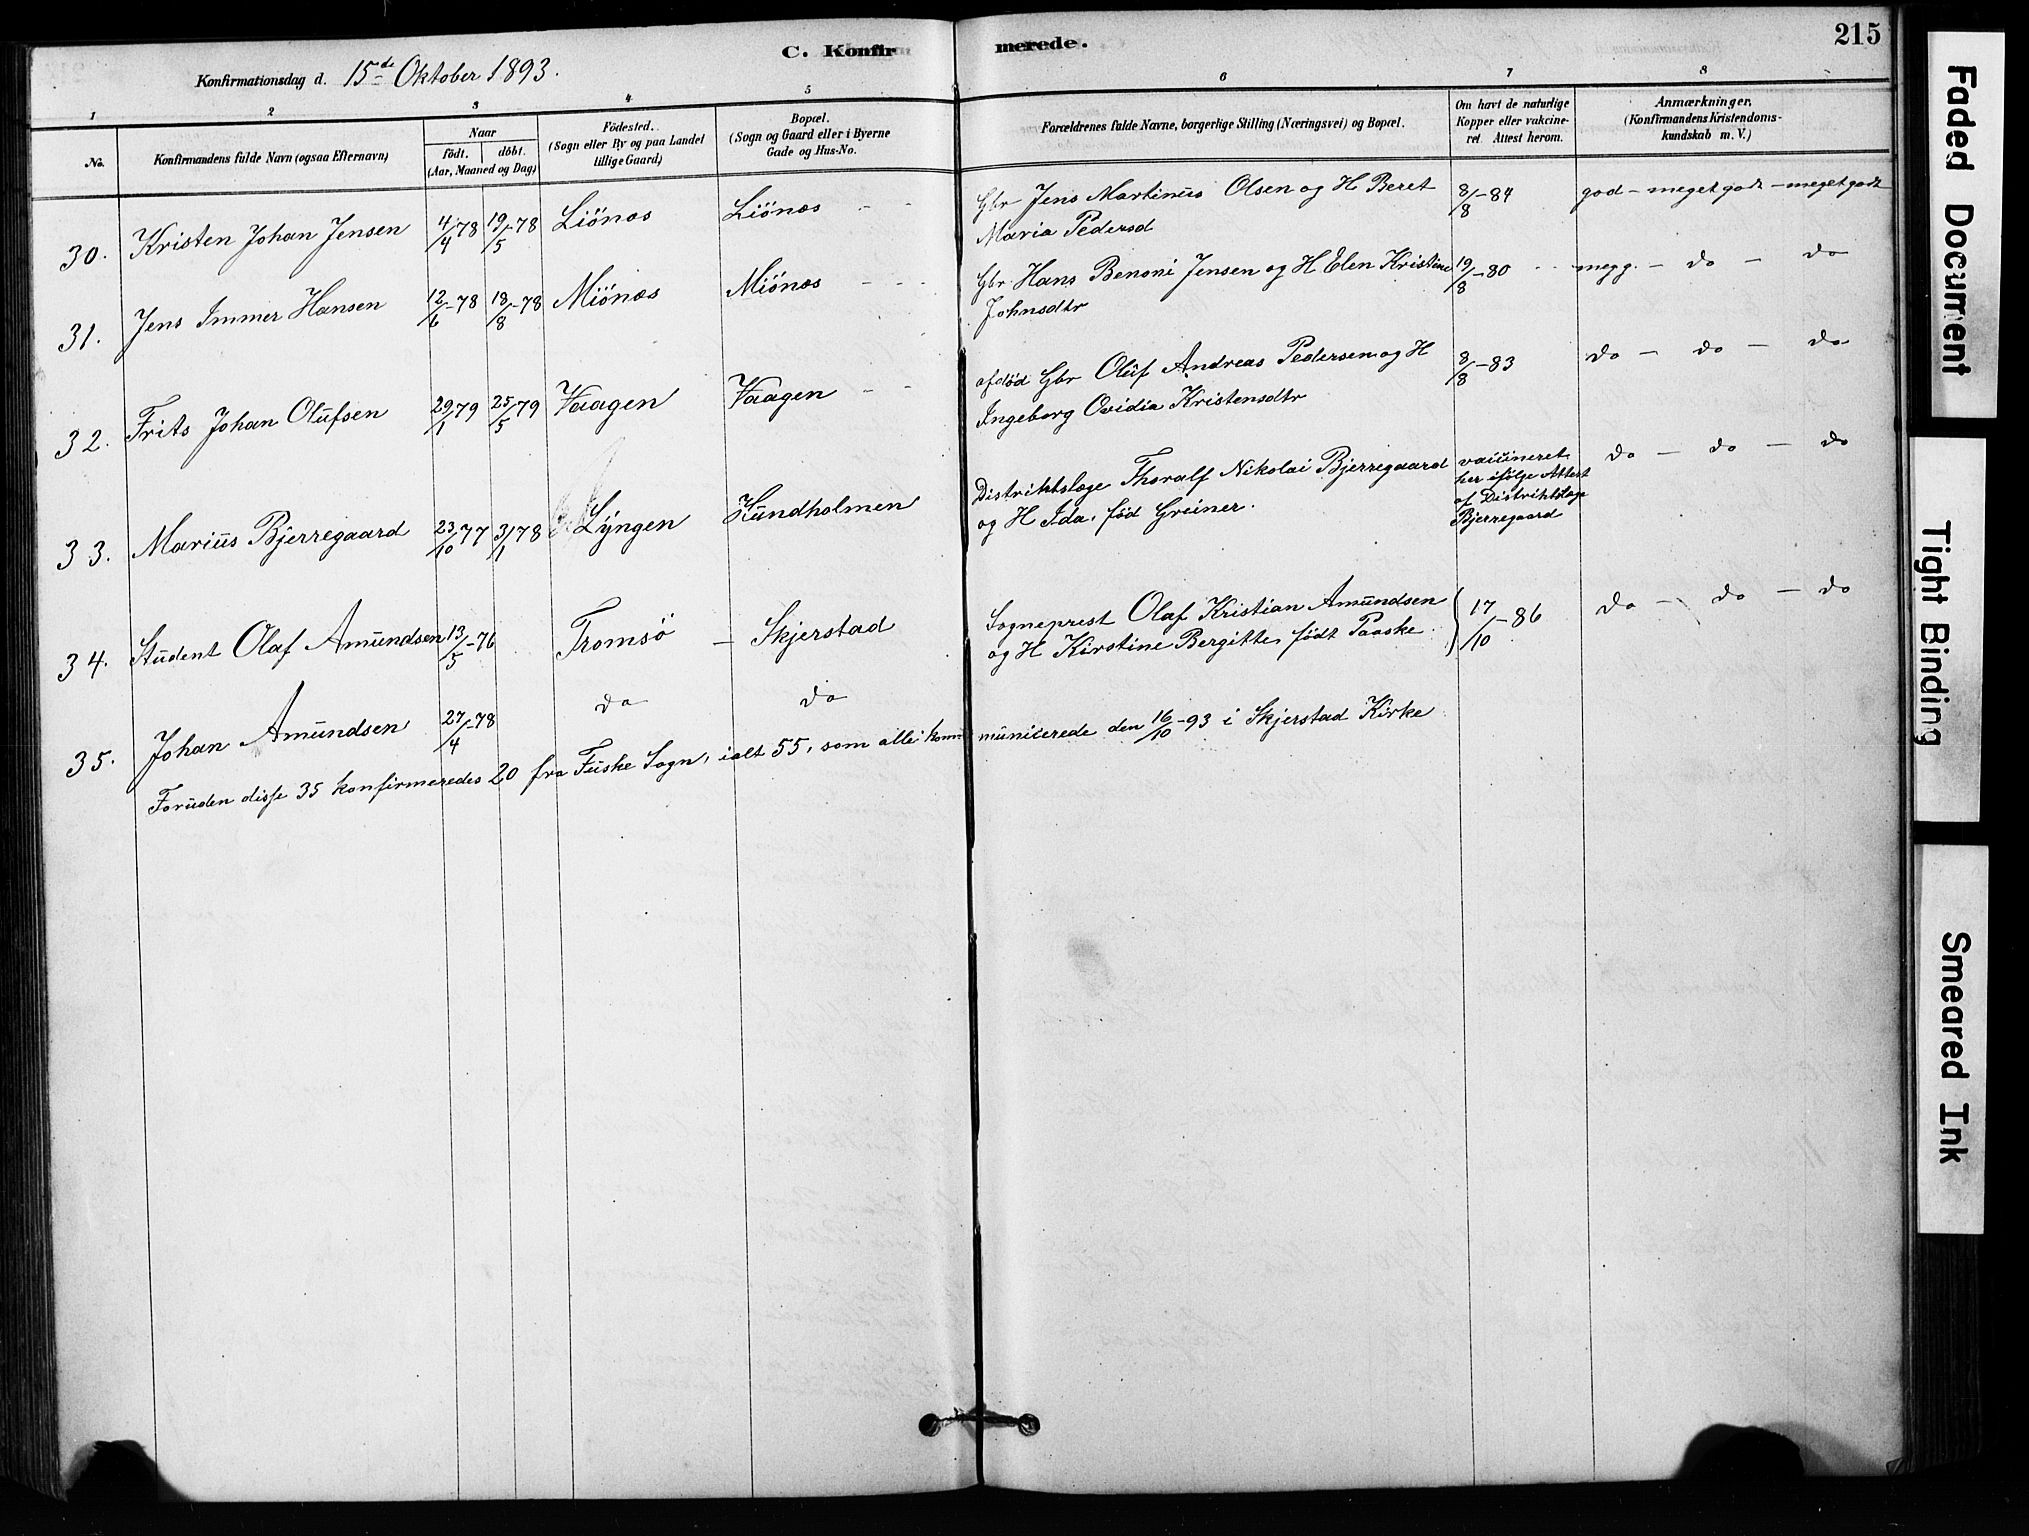 C. Konfirmerede.
215
Konfirmationsdag d. 15de Oktober 1893.
1 2 3 4 5 6 7 8
No.
Konfirmandens fulde Navn (ogsaa Efternavn)
Naar
født. døbt.
(Aar, Maaned og Dag)
Fødested.
(Sogn eller By og paa Landet
tillige Gaard)
Bopæl.
(Sogn og Gaard eller i Byerne
Gade og Hus-No.
Forældrenes fulde Navne, borgerlige Stilling (Næringsvei) og Bopæl.
Om havt de naturlige
Kopper eller vakcine-
ret. Attest herom.
Anmærkninger.
(Konfirmandens Kristendoms-
kundskab m. V.)
30. Kristen Johan Jensen 4/4-78 19/5-78 Liönæs Liönæs - - Gbr Jens Martinus Olsen og H Beret 8/8-84 god - meget godt - meget godt
Maria Pedersd
31. Jens Immer Hansen 12/6-78 18/8-78 Miönæs Miönæs - - - Gbr Hans Benoni Jensen og H Elen Kristine 19/8-80 - - meg g. - do - do
Johnsdtr
32. Frits Johan Olufsen 29/1 79 25/5 79 Vaagen Vaagen - - afdød Gbr Oluf Andreas Pedersen og H 8/8-83 do - do - do
Ingeborg Ovidia Kristensdtr
33. Marius Bjerregaard 23/10 77 3/1 78 Lyngen Hundholmen Distriktslæge Thoralf Nikolai Bjerregaard vaccineret do - do - do
og H Ida, fød Greiner. her ifølge Attest
af Distriktslæge
Bjerregaard
34. Student Olaf Amundsen 13/5-76 Tromsø - Skjerstad Sogneprest Olaf Kristian Amundsen 17/10-86 do - do - do
og H Kirstine Bergitte, født Paaske
35. Johan Amundsen 27/4-78 do do
Foruden disse 35 konfirmeredes 20 fra Fuske Sogn, ialt 55, som alle kommunicerede den 16/10-93 i Skjerstad Kirke
Faded Document
Tight Binding
Smeared Ink